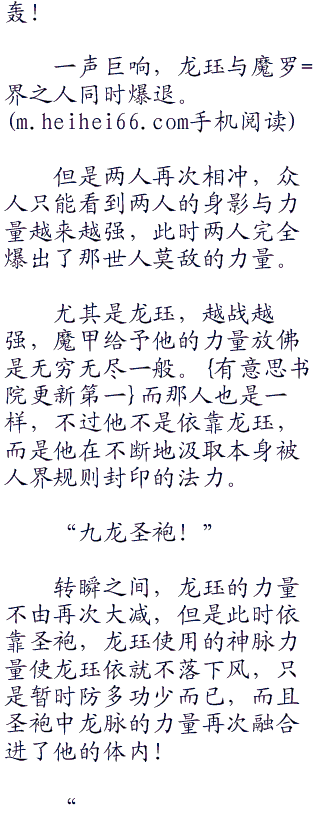 轰！
一声巨响，龙珏与魔罗=
界之人同时爆退。
(m.heihei66.com手机阅读)
但是两人再次相冲，众
人只能看到两人的身影与力
量越来越强，此时两人完全
爆出了那世人莫敌的力量。
尤其是龙珏，越战越
强，魔甲给予他的力量放佛
是无穷无尽一般。{有意思书
院更新第一}而那人也是一
样，不过他不是依靠龙珏，
而是他在不断地汲取本身被
人界规则封印的法力。
“九龙圣袍！”
转瞬之间，龙珏的力量
不由再次大减，但是此时依
靠圣袍，龙珏使用的神脉力
量使龙珏依就不落下风，只
是暂时防多功少而已，而且
圣袍中龙脉的力量再次融合
进了他的体内！
“